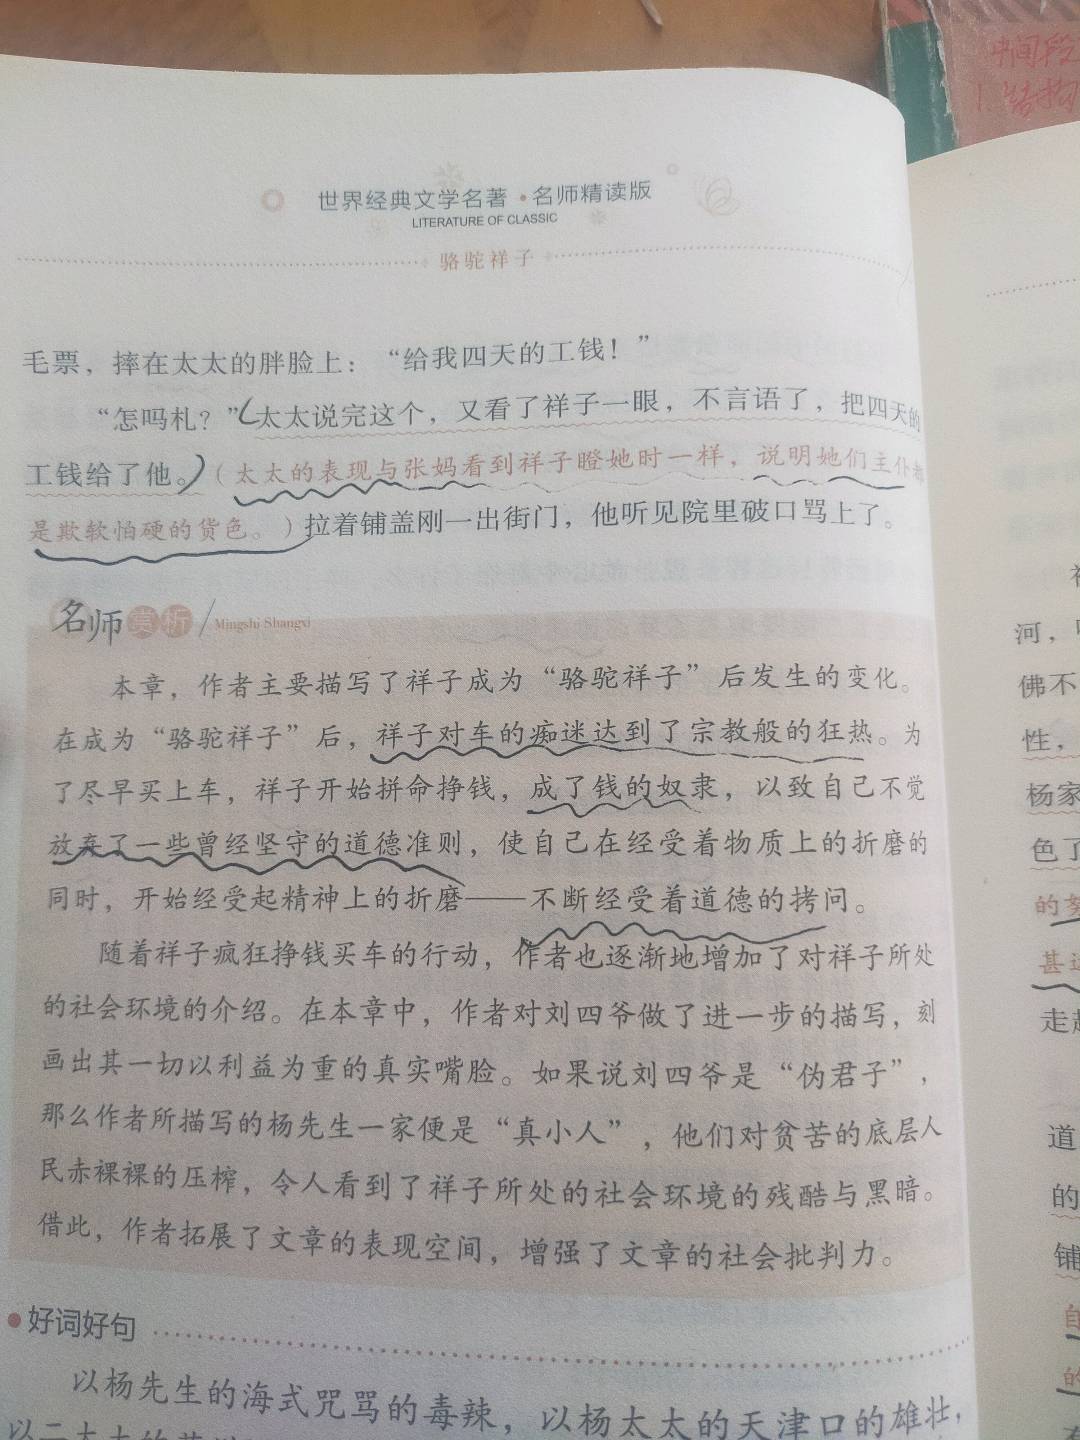 中间段
1.结构
世界经典文学名著·名师精读版
LITERATURE OF CLASSIC
骆驼祥子
毛票，摔在太太的胖脸上：“给我四天的工钱！”
“怎吗札？”太太说完这个，又看了祥子一眼，不言语了，把四天的
工钱给了他。（太太的表现与张妈看到祥子瞪她时一样，说明她们主仆都
是欺软怕硬的货色。）拉着铺盖刚一出街门，他听见院里破口骂上了。
名师赏析/Mingshi Shangxi
本章，作者主要描写了祥子成为“骆驼祥子”后发生的变化。
在成为“骆驼祥子”后，祥子对车的痴迷达到了宗教般的狂热。为
了尽早买上车，祥子开始拼命挣钱，成了钱的奴隶，以致自己不觉
放弃了一些曾经坚守的道德准则，使自己在经受着物质上的折磨的
同时，开始经受起精神上的折磨——不断经受着道德的拷问。
随着祥子疯狂挣钱买车的行动，作者也逐渐地增加了对祥子所处
的社会环境的介绍。在本章中，作者对刘四爷做了进一步的描写，刻
画出其一切以利益为重的真实嘴脸。如果说刘四爷是“伪君子”，
那么作者所描写的杨先生一家便是“真小人”，他们对贫苦的底层人
民赤裸裸的压榨，令人看到了祥子所处的社会环境的残酷与黑暗。
借此，作者拓展了文章的表现空间，增强了文章的社会批判力。
好词好句
以杨先生的海式咒骂的毒辣，以杨太太的天津口的雄壮，
以二太太的
河，
佛不
性，
杨家
色了
的努
甚
走
道
的
铺
自
的